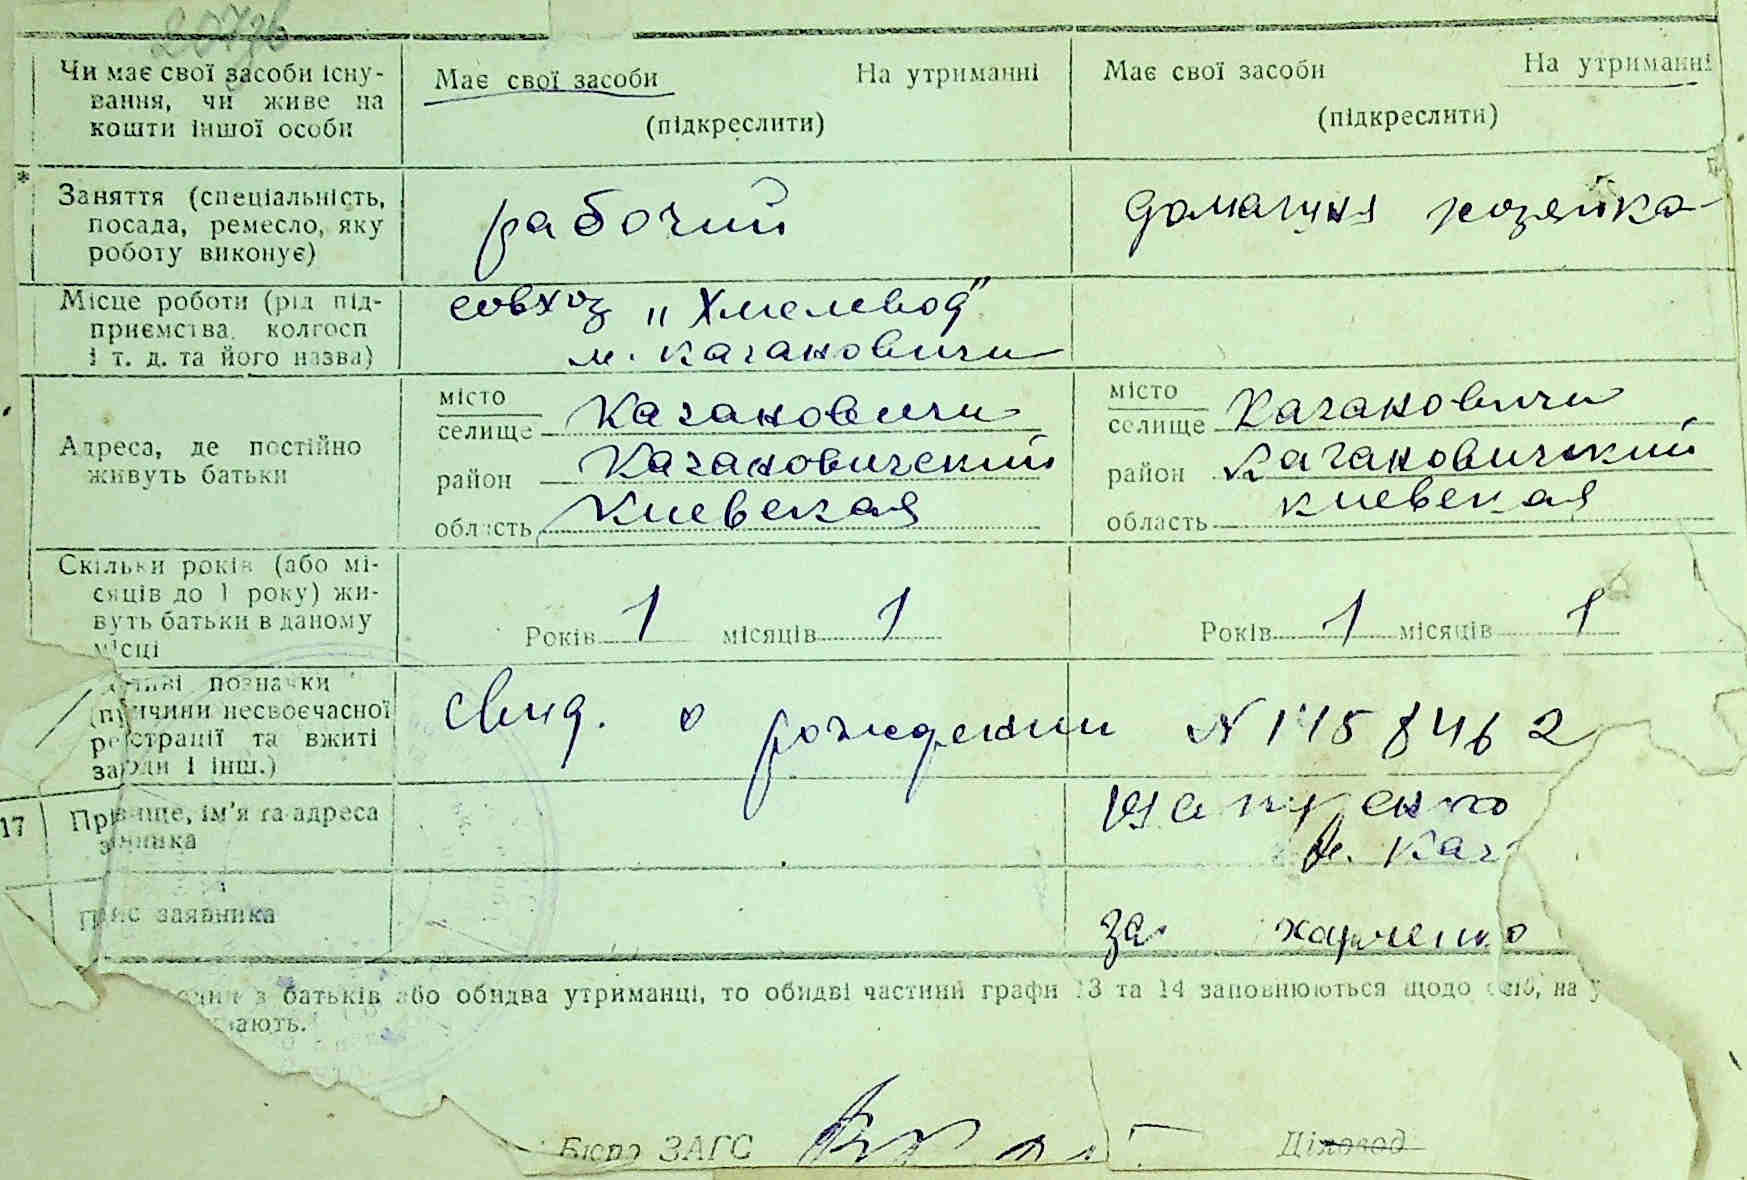 Чи має свої засоби існу-
вання, чи живе на
кошти іншої особи
Має свої засоби На утриманні
(підкреслити)
Має свої засоби На утриманні
(підкреслити)
* Заняття (спеціальність,
посада, ремесло, яку
роботу виконує)
рабочий
домашняя хозяйка
Місце роботи (рід під-
приємства, колгосп
і т. д. та його назва)
совхоз „Хмелевод"
м. Кагановичи
Адреса, де постійно
живуть батьки
місто
селище Кагановичи
район Кагановичский
область Киевская
місто
селище Кагановичи
район Кагановичский
область Киевская
Скільки років (або мі-
сяців до 1 року) жи-
вуть батьки в даному
місці
Років 1 місяців 1
Років 1 місяців 1
позначки
(причини несвоєчасної
реєстрації та вжиті
заходи і інш.)
свид. о рождении N
17 Прізвище, ім'я та адреса
заявника
м. Каг
Підпис заявника
за Харченко
з батьків або обидва утриманці, то обидві частини графи 13 та 14 заповнюються щодо осіб, на
Бюро ЗАГС
Діловод